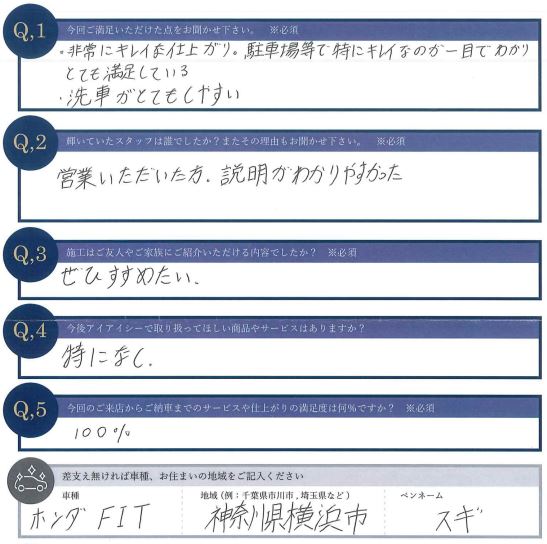 Q,1
今回ご満足いただけた点をお聞かせ下さい。 ※必須
・非常にキレイな仕上がり。駐車場等で特にキレイなのが一目でわかり
とても満足している
・洗車がとてもしやすい
Q,2
輝いていたスタッフは誰でしたか？またその理由もお聞かせ下さい。 ※必須
営業いただいた方、説明がわかりやすかった
Q,3
施工はご友人やご家族にご紹介いただける内容でしたか？ ※必須
ぜひすすめたい、
Q,4
今後アイアイシーで取り扱ってほしい商品やサービスはありますか？
特になし、
Q,5
今回のご来店からご納車までのサービスや仕上がりの満足度は何％ですか？ ※必須
100%
差支え無ければ車種、お住まいの地域をご記入ください
車種 地域（例：千葉県市川市,埼玉県など） ペンネーム
ホンダ FIT 神奈川県横浜市 スギ